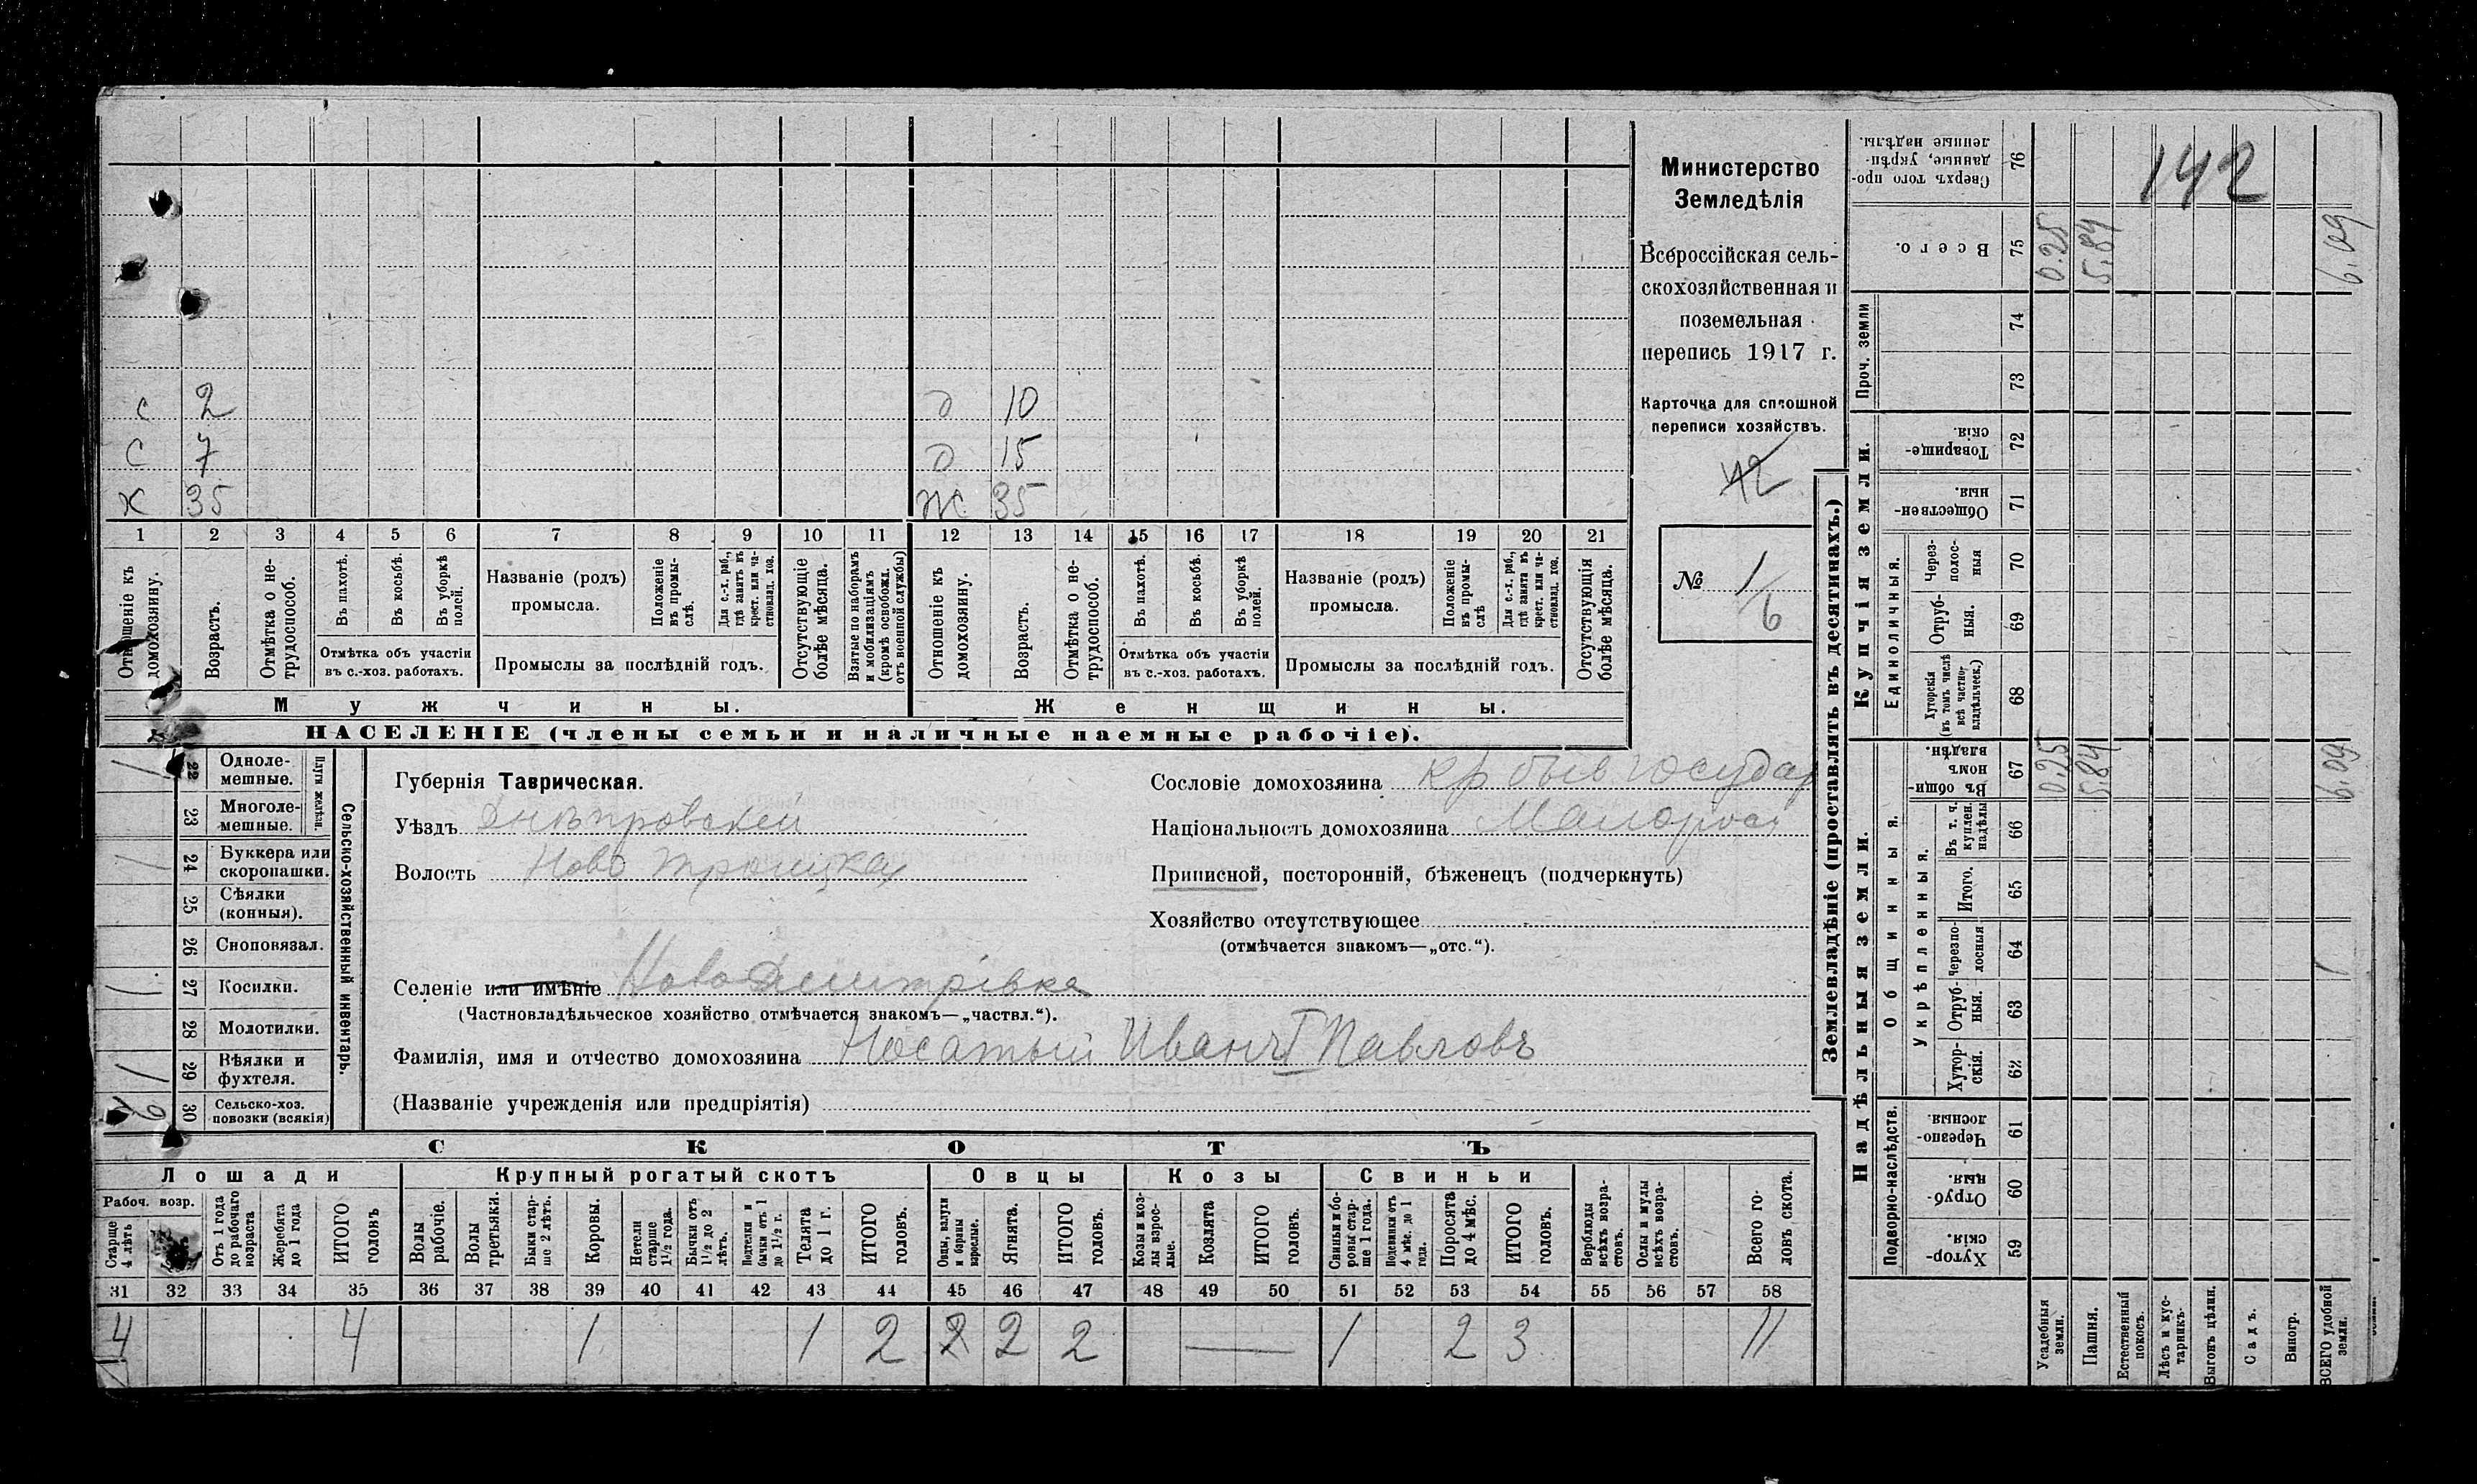 142
Министерство
Земледѣлія
Всероссійская сель-
скохозяйственная и
поземельная
перепись 1917 г.
Карточка для сплошной
переписи хозяйствъ.
42
№ 1/6
с 2 д 10
с 7 д 15
х 35 ж 35
1 2 3 4 5 6 7 8 9 10 11 12 13 14 15 16 17 18 19 20 21
Отношеніе къ домохозяину.
Возрастъ.
Отмѣтка о не-трудоспособ.
Въ пахотѣ.
Въ косьбѣ.
Въ уборкѣ полей.
Отмѣтка объ участіи
въ с.-хоз. работахъ.
Названіе (родъ)
промысла.
Положеніе въ промы-слѣ.
Для с.-х. раб., гдѣ занятъ въ крест. или ча-стновлад. хоз.
Промыслы за послѣдній годъ.
Отсутствующіе болѣе мѣсяца.
Взятые по наборамъ и мобилизаціямъ (кромѣ освобожд. отъ военной службы)
Отношеніе къ домохозяину.
Возрастъ.
Отмѣтка о не-трудоспособ.
Въ пахотѣ.
Въ косьбѣ.
Въ уборкѣ полей.
Отмѣтка объ участіи
въ с.-хоз. работахъ.
Названіе (родъ)
промысла.
Положеніе въ промы-слѣ
Для с.-х. раб., гдѣ занята въ крест. или ча-стновлад. хоз.
Промыслы за послѣдній годъ.
Отсутствующія болѣе мѣсяца.
Мужчины. Женщины.
НАСЕЛЕНІЕ (члены семьи и наличные наемные рабочіе).
Сельско-хозяйственный инвентарь.
Плуги желѣзн.
1 22 Одноле-мешные.
23 Многоле-мешные.
1 24 Буккера или скоропашки.
25 Сѣялки (конныя).
26 Сноповязал.
1 27 Косилки.
28 Молотилки.
1 29 Вѣялки и фухтеля.
30 Сельско-хоз. повозки (всякія)
Губернія Таврическая.
Уѣздъ Днѣпровскій
Волость Ново Троицкая
Сословіе домохозяина кр. быв. государ
Національность домохозяина Малорос
Приписной, посторонній, бѣженецъ (подчеркнуть)
Хозяйство отсутствующее
(отмѣчается знакомъ—„отс.“).
Селеніе или имѣніе Ново Дмитрівка
(Частновладѣльческое хозяйство отмѣчается знакомъ—„частвл.“).
Фамилія, имя и отчество домохозяина Носатый Иванъ I Павловъ
(Названіе учрежденія или предпріятія)
СКОТЪ
Лошади Крупный рогатый скотъ Овцы Козы Свиньи
Рабоч. возр.
Старше 4 лѣтъ
Отъ 1 года до рабочаго возраста
Жеребята до 1 года
ИТОГО головъ
Волы рабочіе.
Волы третьяки.
Быки стар-ше 2 лѣтъ.
Коровы.
Нетели старше 1½ года.
Бычки отъ 1½ до 2 лѣтъ.
Подтелки и бычки отъ 1 до 1½ г.
Телята до 1 г.
ИТОГО головъ.
Овцы, валухи и бараны взрослые.
Ягнята.
ИТОГО головъ.
Козы и коз-лы взрос-лые.
Козлята
ИТОГО головъ.
Свиньи и бо-ровы стар-ше 1 года.
Подсвинки отъ 4 мѣс. до 1 года.
Поросята до 4 мѣс.
ИТОГО головъ.
Верблюды всѣхъ возра-стовъ.
Ослы и мулы всѣхъ возра-стовъ.
Всего го-ловъ скота.
31 32 33 34 35 36 37 38 39 40 41 42 43 44 45 46 47 48 49 50 51 52 53 54 55 56 57 58
4 4 1 1 2 2 2 2 — 1 2 3 11
Землевладѣніе (проставлять въ десятинахъ.)
Надѣльныя земли.
Купчія земли.
Проч. земли
Подворно-наслѣдств.
Общинныя.
Укрѣпленныя.
Единоличныя.
Сверхъ того про-данные, укрѣп-ленные надѣлы. 76
Всего. 75 0.25 5.84 6.09
74
73
Товарище-скія. 72
Обществен-ныя. 71
Через-полос-ныя 70
Отруб-ныя. 69
Хуторскія (въ томъ числѣ всѣ частно-владѣльческ.) 68
Въ общин-номъ владѣн. 67 0.25 5.84 6.09
Въ т. ч. куплен. надѣлы 66
Итого. 65
Черезпо-лосныя 64
Отруб-ныя. 63
Хутор-скія. 62
Черезпо-лосныя. 61
Отруб-ныя. 60
Хутор-скія. 59
Усадебныя земли.
Пашня.
Естественный покосъ.
Лѣсъ и кус-тарникъ.
Выгонъ цѣлин.
Садъ.
Виногр.
ВСЕГО удобной земли.